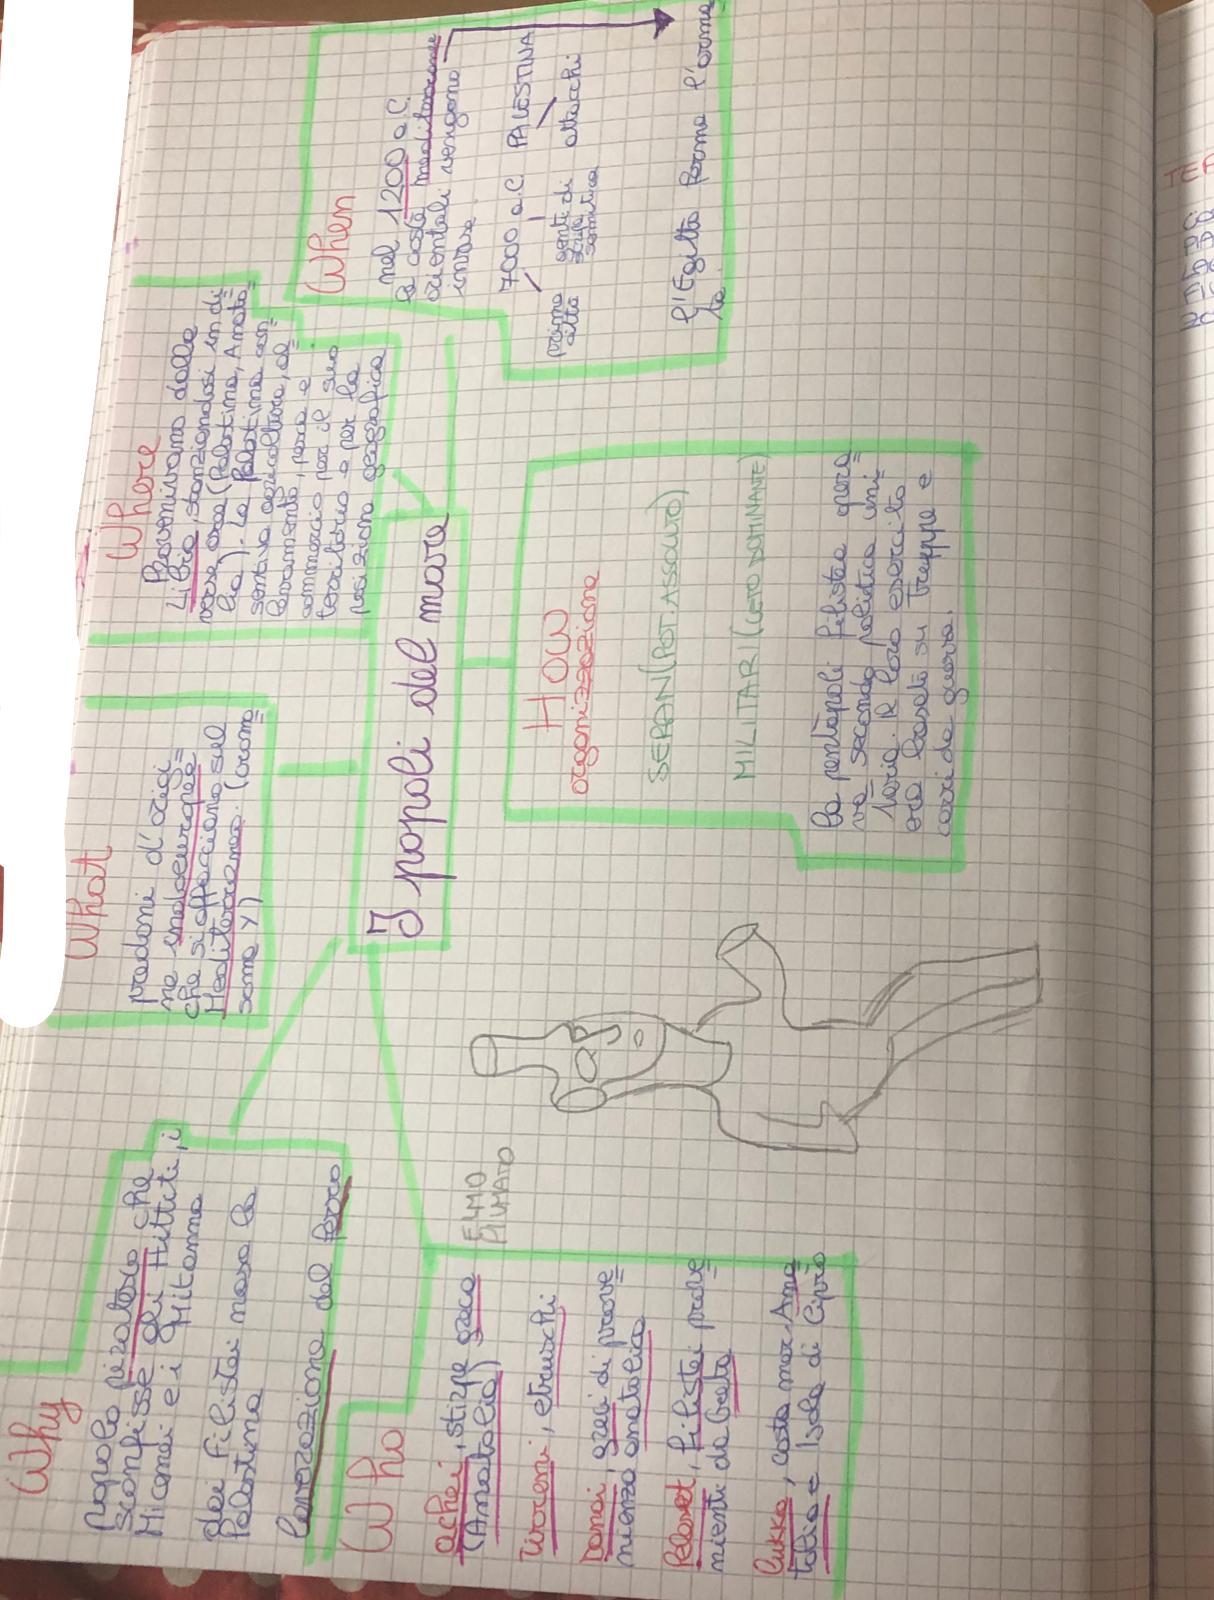 I popoli del mare
Why
Popolo piratesco che
sconfisse gli Hittiti, i
Micenei e i Mitanno
dei filistei nasce la
Palestina
lavorazione del ferro
What
predoni d'origi
ne indoeuropea
che si affacciano sul
Mediterraneo. (crom
soma Y)
Where
Provenivano dalla
Libia, stanziandosi in di
verse aree (Palestina, Anato
lia). La Palestina con
sentiva agricoltura, al
levamento, pesca e
commercio per il suo
territorio e per la
posizione geografica
When
nel 1200 a.C.
le coste mediterranee
orientali vengono
invase.
7000 a.C. PALESTINA
prime
città
genti di
stirpe
semitica
attacchi
l'Egitto ferma l'orma
ta
Who
achei, stirpe greca
(Anatolia)
Tirreni, etruschi
Danai, greci di prove
nienza anatolica
Peleset, filistei prove
nienti da Creta
Lukka, costa mer. Ana
tolia e Isola di Cipro
ELMO
PIUMATO
HOW
organizzazione
SEREN (POT. ASSOLUTO)
MILITARI (CETO DOMINANTE)
la pentapoli filistea opera
va secondo politica uni
taria. Il loro esercito
era basato su Truppe e
carri da guerra.